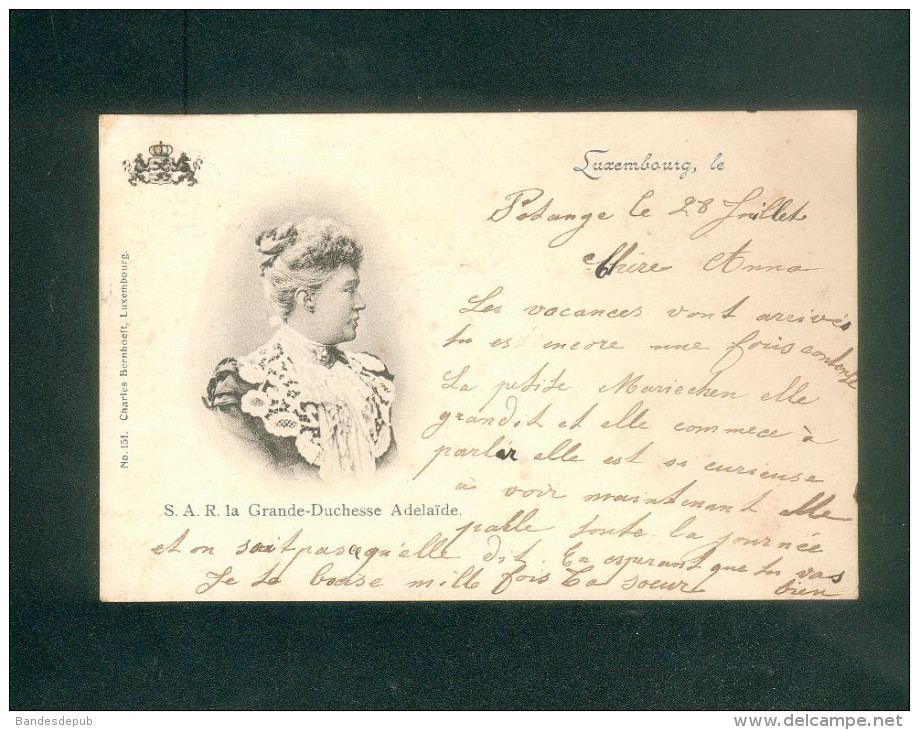 Luxembourg, le
Petange le 28 Juillet
Chère Anna
Les vacances vont arrivés
tu est encore une fois contente
La petite Mariechen elle
grandit et elle commece à
parler elle est si curieuse
à voir maintenant elle
parle toute la journée
et on sait pas qu'elle dit. En esperant que tu vas
bien
Je te baise mille fois ta soeur
S. A. R. la Grande-Duchesse Adelaïde.
No. 151. Charles Bernhoeft, Luxembourg.
Bandesdepub
www.delcampe.net